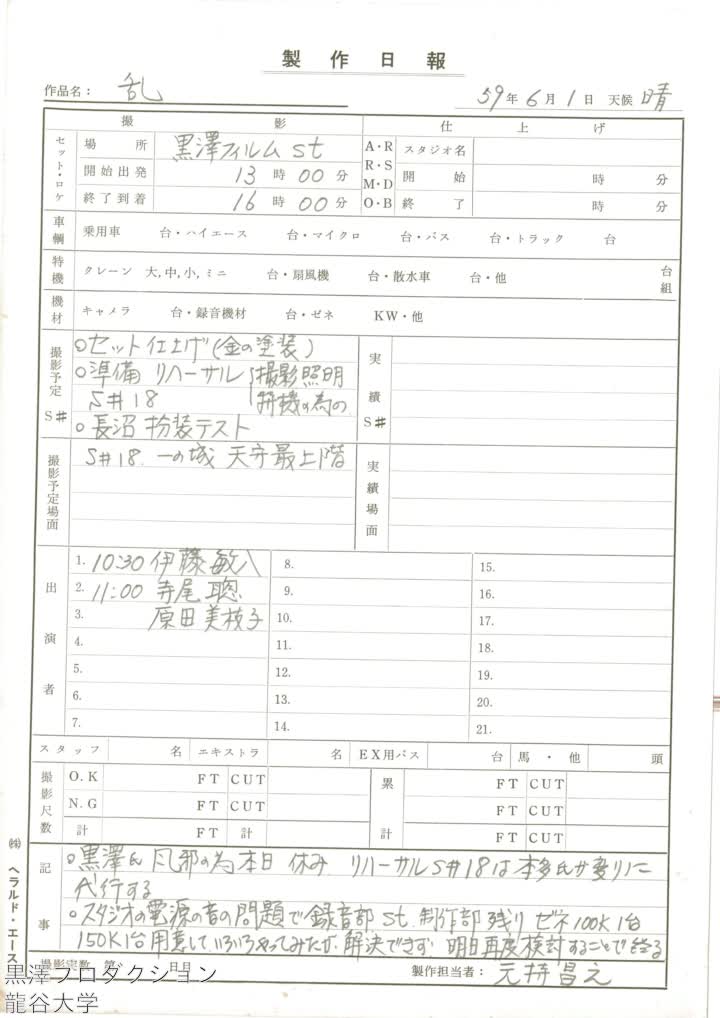 製作日報
作品名： 乱 59年6月1日 天候 晴
撮影 仕上げ
セット・ロケ 場所 黒澤フィルム st A・R R・S M・D O・B スタジオ名
開始出発 13時00分 開始 時 分
終了到着 16時00分 終了 時 分
車輌 乗用車 台・ハイエース 台・マイクロ 台・バス 台・トラック 台
特機 クレーン 大,中,小,ミニ 台・扇風機 台・散水車 台・他 台組
機材 キャメラ 台・録音機材 台・ゼネ KW・他
撮影予定 S# 実績 S#
○セット仕上げ(金の塗装)
○準備 リハーサル 撮影照明
S#18 特機の為の
○長沼 扮装テスト
撮影予定場面 S#18. 一の城 天守最上階 実績場面
出演者
1. 10:30 伊藤敏八 8. 15.
2. 11:00 寺尾 聰 9. 16.
3. 原田美枝子 10. 17.
4. 11. 18.
5. 12. 19.
6. 13. 20.
7. 14. 21.
スタッフ 名 エキストラ 名 EX用バス 台 馬・他 頭
撮影尺数 O.K FT CUT 累計 FT CUT
N.G FT CUT FT CUT
計 FT 計 FT CUT
記事
○黒澤氏 風邪の為本日 休み リハーサルS#18は本多氏が変りに
代行する
○スタジオの電源の音の問題で録音部 st. 制作部 残り ゼネ100K1台
150K1台用意していろいろやってみたが 解決できず 明日再度検討することで終る
撮影定数 第 日目 製作担当者： 元持昌之
㈱ ヘラルド・エース
黒澤プロダクション
龍谷大学